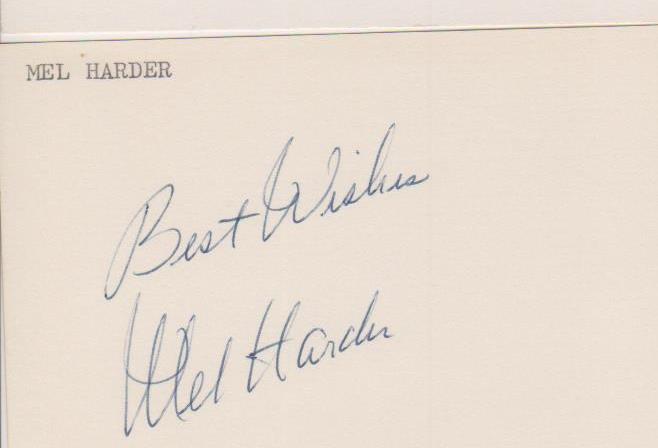 MEL HARDER
Best Wishes
Mel Harder